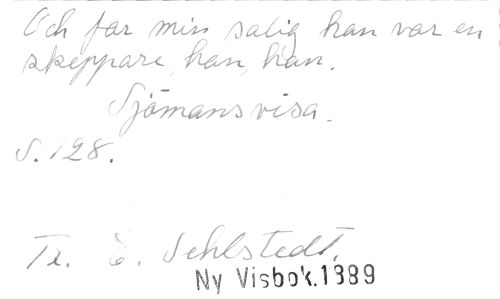 Och far min salig han var en
skeppare, han, han.
Sjömansvisa.
S. 128.
Tr. E. Sehlstedt.
Ny Visbok.1889